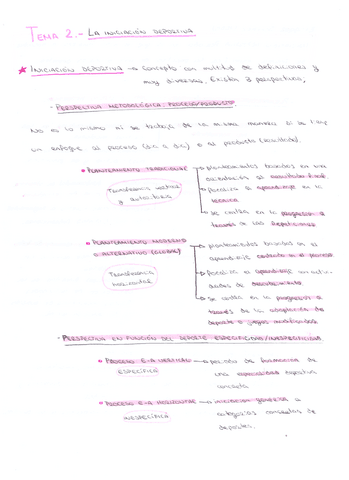 TEMA 2.- LA INICIACIÓN DEPORTIVA
INICIACIÓN DEPORTIVA → concepto con multitud de definiciones y
muy diversas. Existen 2 perspectivas;
- PERSPECTIVA METODOLÓGICA:
No es lo mismo si se trabaja de la misma manera si se tiene
un enfoque al proceso o al producto (resultado).
PLANTEAMIENTO TRADICIONAL → planteamientos basados en una
orientación al resultado final
Transferencia vertical
→ focaliza el aprendizaje en la
técnica
→ se centra en la progresión a
través de las repeticiones
PLANTEAMIENTO MODERNO → planteamientos basados en el
O ALTERNATIVO (GLOBAL) aprendizaje centrado en el proceso
Transferencia
horizontal
→ focaliza el aprendizaje en activi-
dades de descubrimiento
→ se centra en la progresión a
través de la adaptación de
deporte o juegos modificados
- PERSPECTIVA EN FUNCIÓN DEL DEPORTE ESPECIFICIDAD/INESPECIFICIDAD
PROCESO E-A VERTICAL → periodo de formación de
ESPECÍFICO una especialidad deportiva
concreta
PROCESO E-A HORIZONTAL → iniciación genérica a
INESPECÍFICO categorías concretas de
deportes.